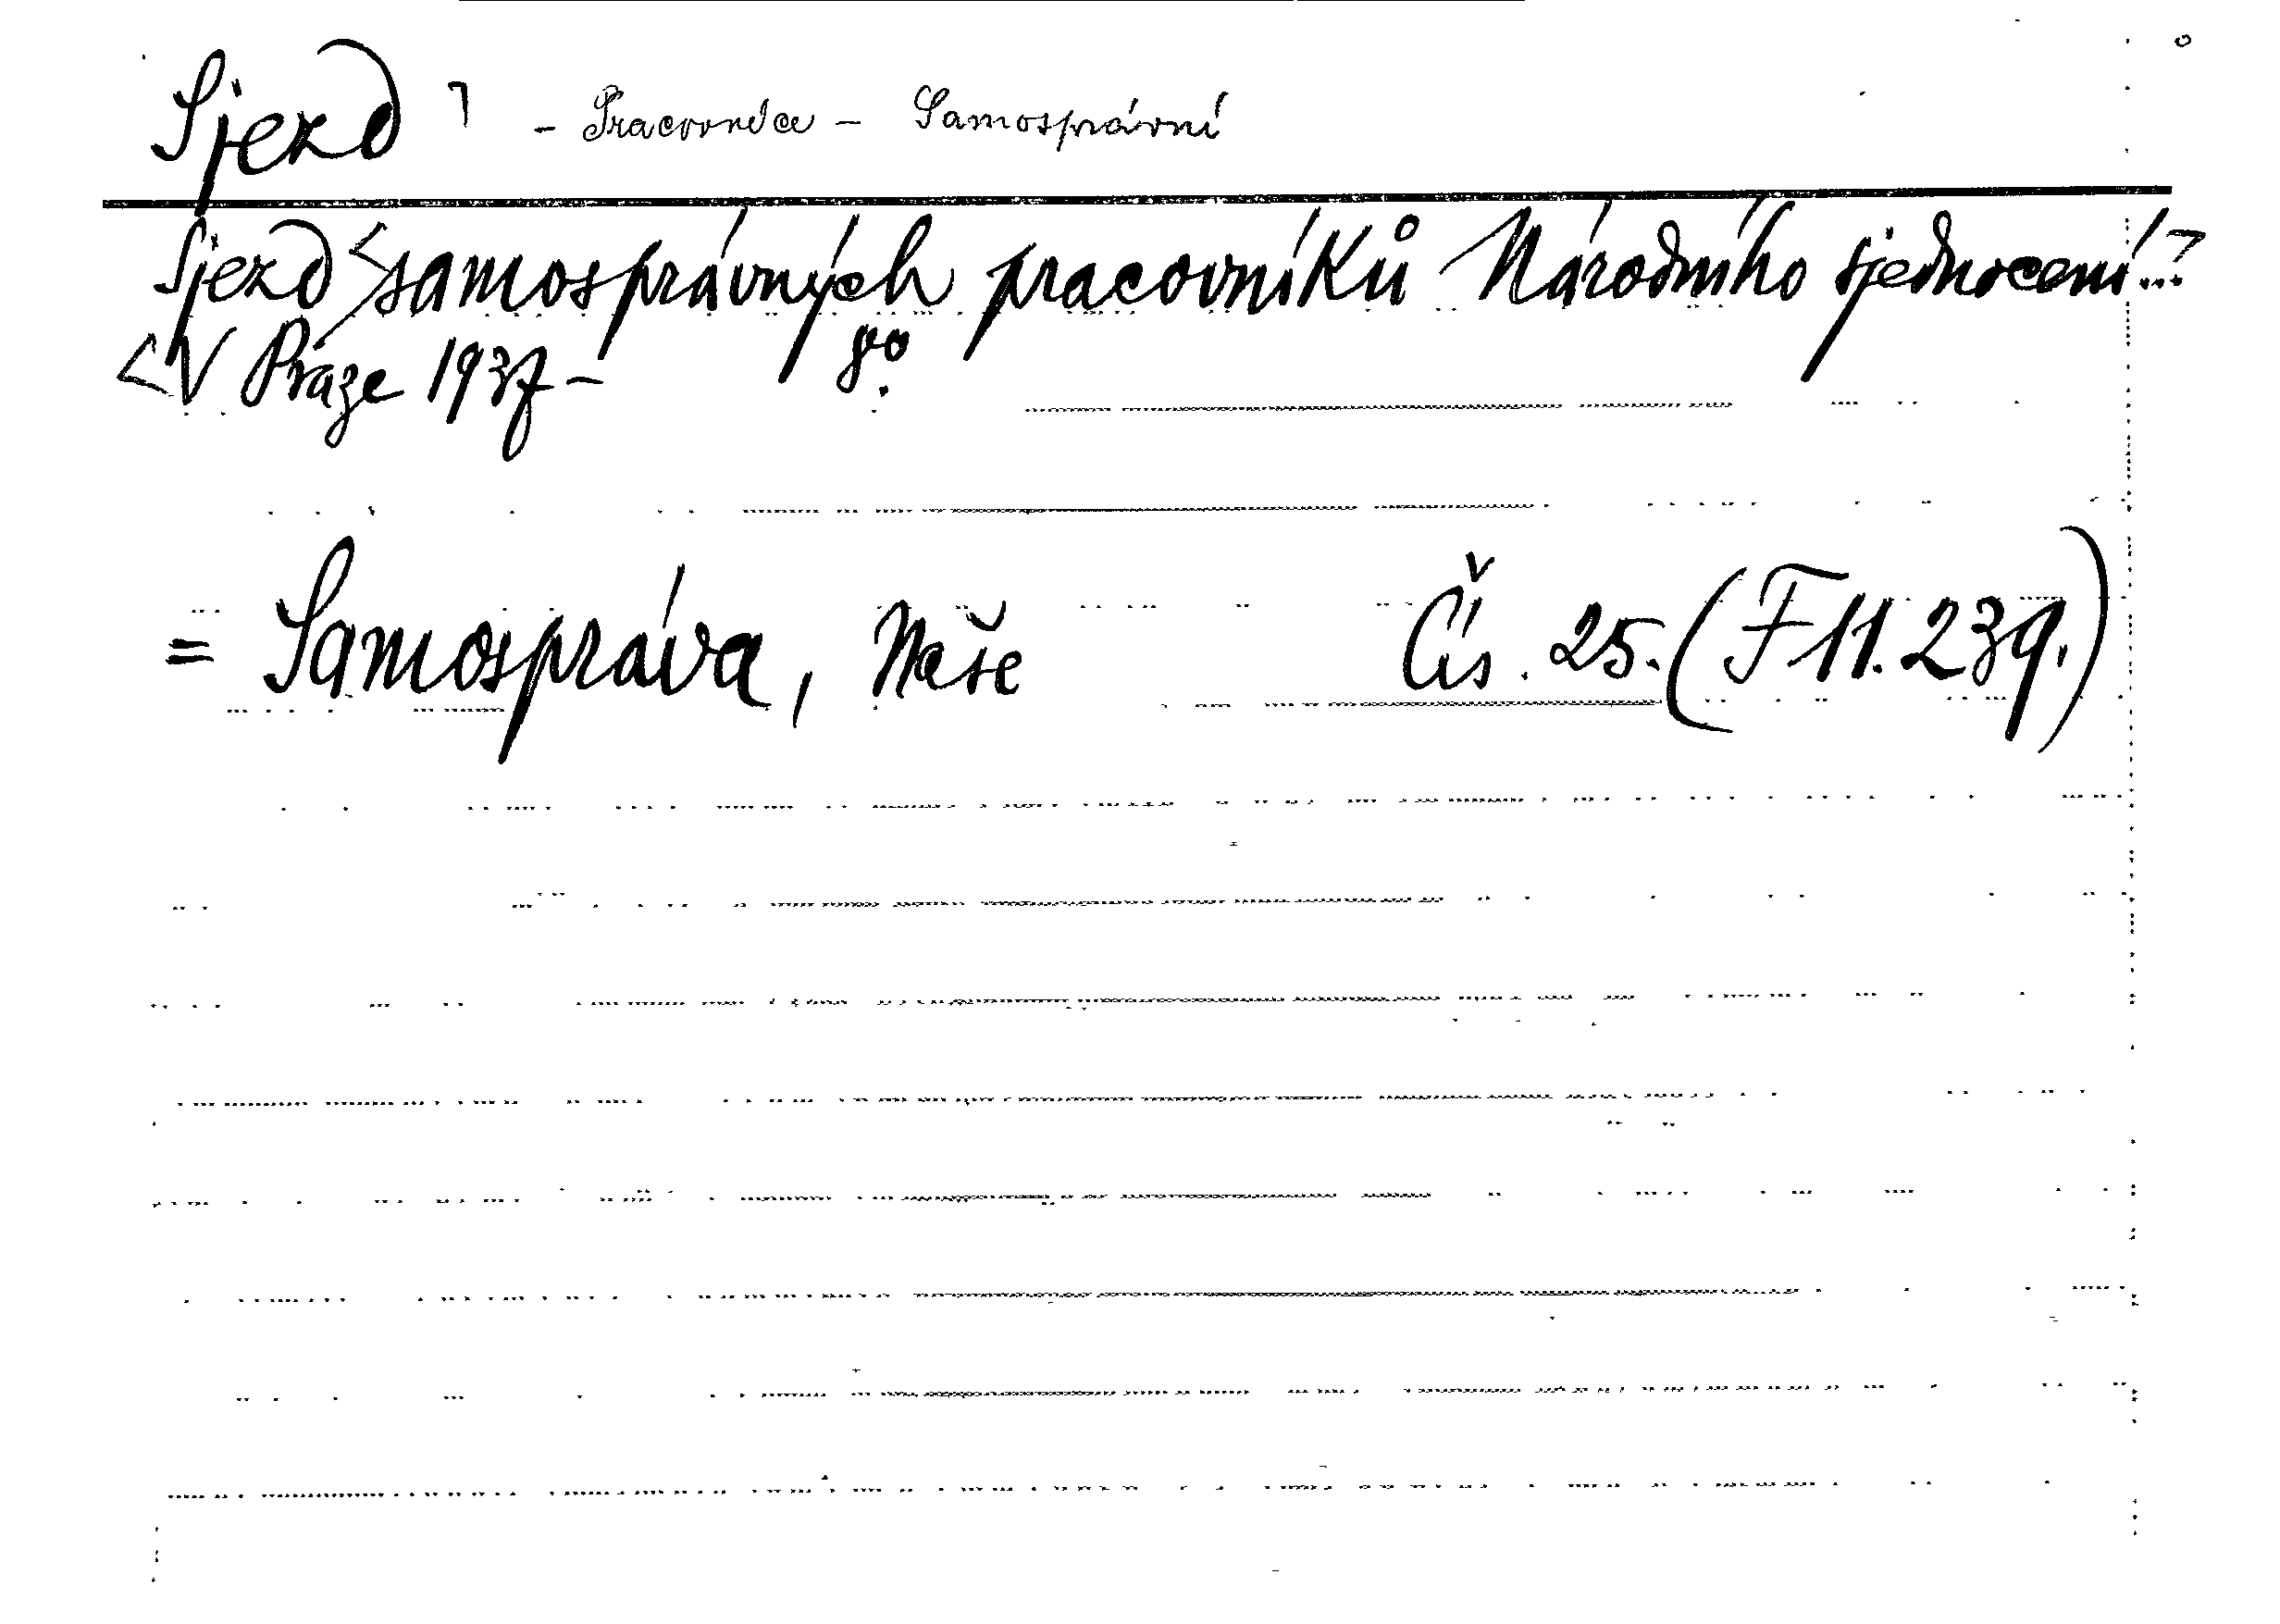 Sjezd ┐ - Pracovníce - Samosprávní
Sjezd <samosprávných pracovníků Národního sjednocení...?
<V Praze 1937 - 8°.
= Samospráva, Naše Čís. 25. (F 11.239.)